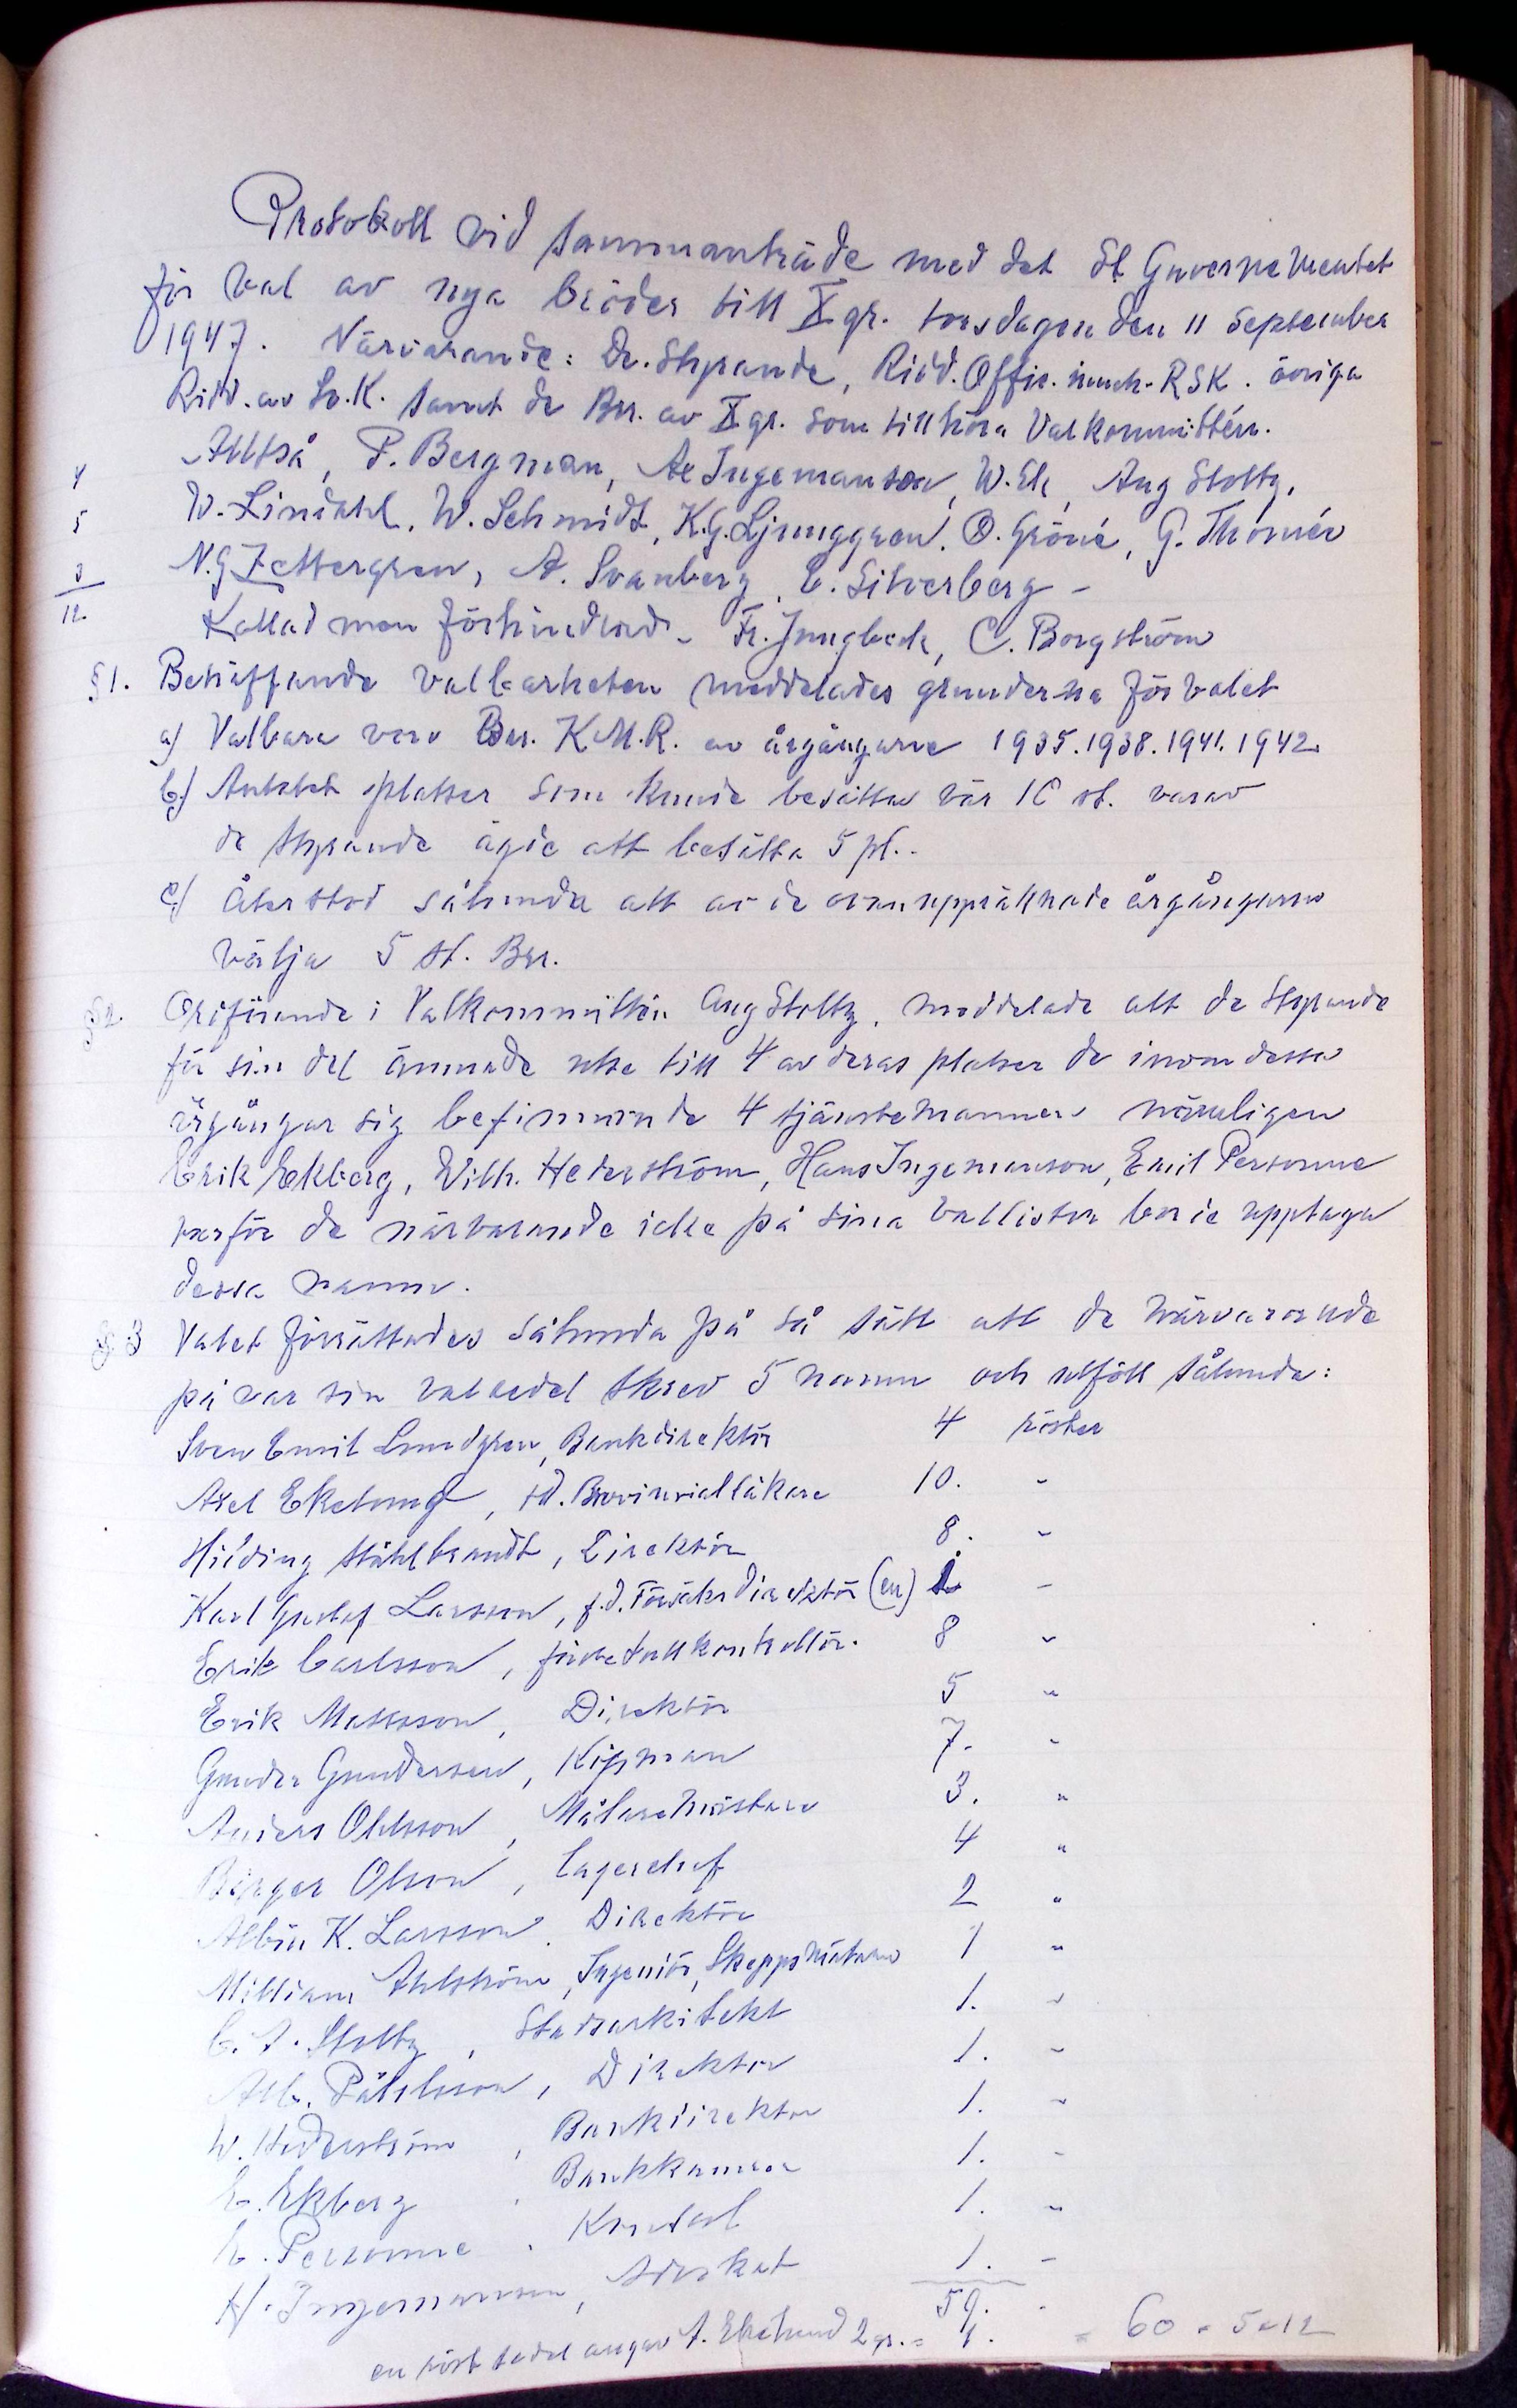 Protokoll vid sammanträde med det St. Guvernementet
för val av nya bröder till X gr. torsdagen den 11 September
1947. Närvarande: De. Styrande, Ridd. Offic. innch. RSK. övriga
Ridd. av Sv.K. samt de Brr. av X gr. som tillhöra Valkommittén.
4 Alltså, P. Bergman, Ax Ingemanson, W. Ek, Aug Stoltz,
5 W. Lindahl, W. Schmidt, K.G. Ljunggren, O. Gröné, G. Thornér
3 N.G Zettergren, A. Svanberg, E. Silverberg –
12. Kallad men förhindrad – Fr. Jungbeck, C. Borgström
§1. Beträffande valbarheten meddelades grunderna för valet
a) Valbara voro Brr. K.M.R. av årgångarna 1935. 1938. 1941. 1942.
b) Antalet platser som kunde besättas var 10 st. varav
de styrande ägde att besätta 5 pl..
c) Återstod sålunda att av de ovanuppräknade årgångarna
välja 5 st. Brr.
§2. Ordförande i Valkommittén Aug Stoltz, meddelade att de Styrande
för sin del ämnade utse till 4 av deras platser de inom dessa
årgångar sig befinnande 4 tjänstemännen nämligen
Erik Ekberg, Wilh. Hederström, Hans Ingemanson, Emil Personne
varför de närvarande icke på sina vallistor borde upptaga
dessa namn.
§ 3 Valet förrättades sålunda på så sätt att de närvarande
på var sin valsedel skrev 5 namn och utföll sålunda:
Sven Emil Lundgren, Bankdirektör 4 röster
Axel Ekelund, f.d. Provinsialläkare 10. "
Hilding Ståhlbrandt, Direktör 8. "
Karl Gustaf Larsson, f.d. Försäkr Direktör (en) 1 "
Erik Carlsson, förste tullkontrollör. 8 "
Erik Mattsson, Direktör 5 "
Gunder Gundersen, Köpman 7. "
Anders Ohlsson, Målaremästare 3. "
Birger Olson, Lagerchef 4 "
Albin K. Larsson, Direktör 2 "
William Ahlström, Ingeniör, Skeppsmätare 1 "
C. A. Stoltz, Stadsarkitekt 1. "
Alb. Påhlsson, Direktör 1. "
W. Hederström, Bankdirektör 1. "
E. Ekberg, Bankkamrer 1. "
E. Personne, 1. "
H. Ingemanson, Advokat 1. "
59. "
en röst sedel angav A. Ekelund 2 gr. = 1. = 60 = 5 x 12